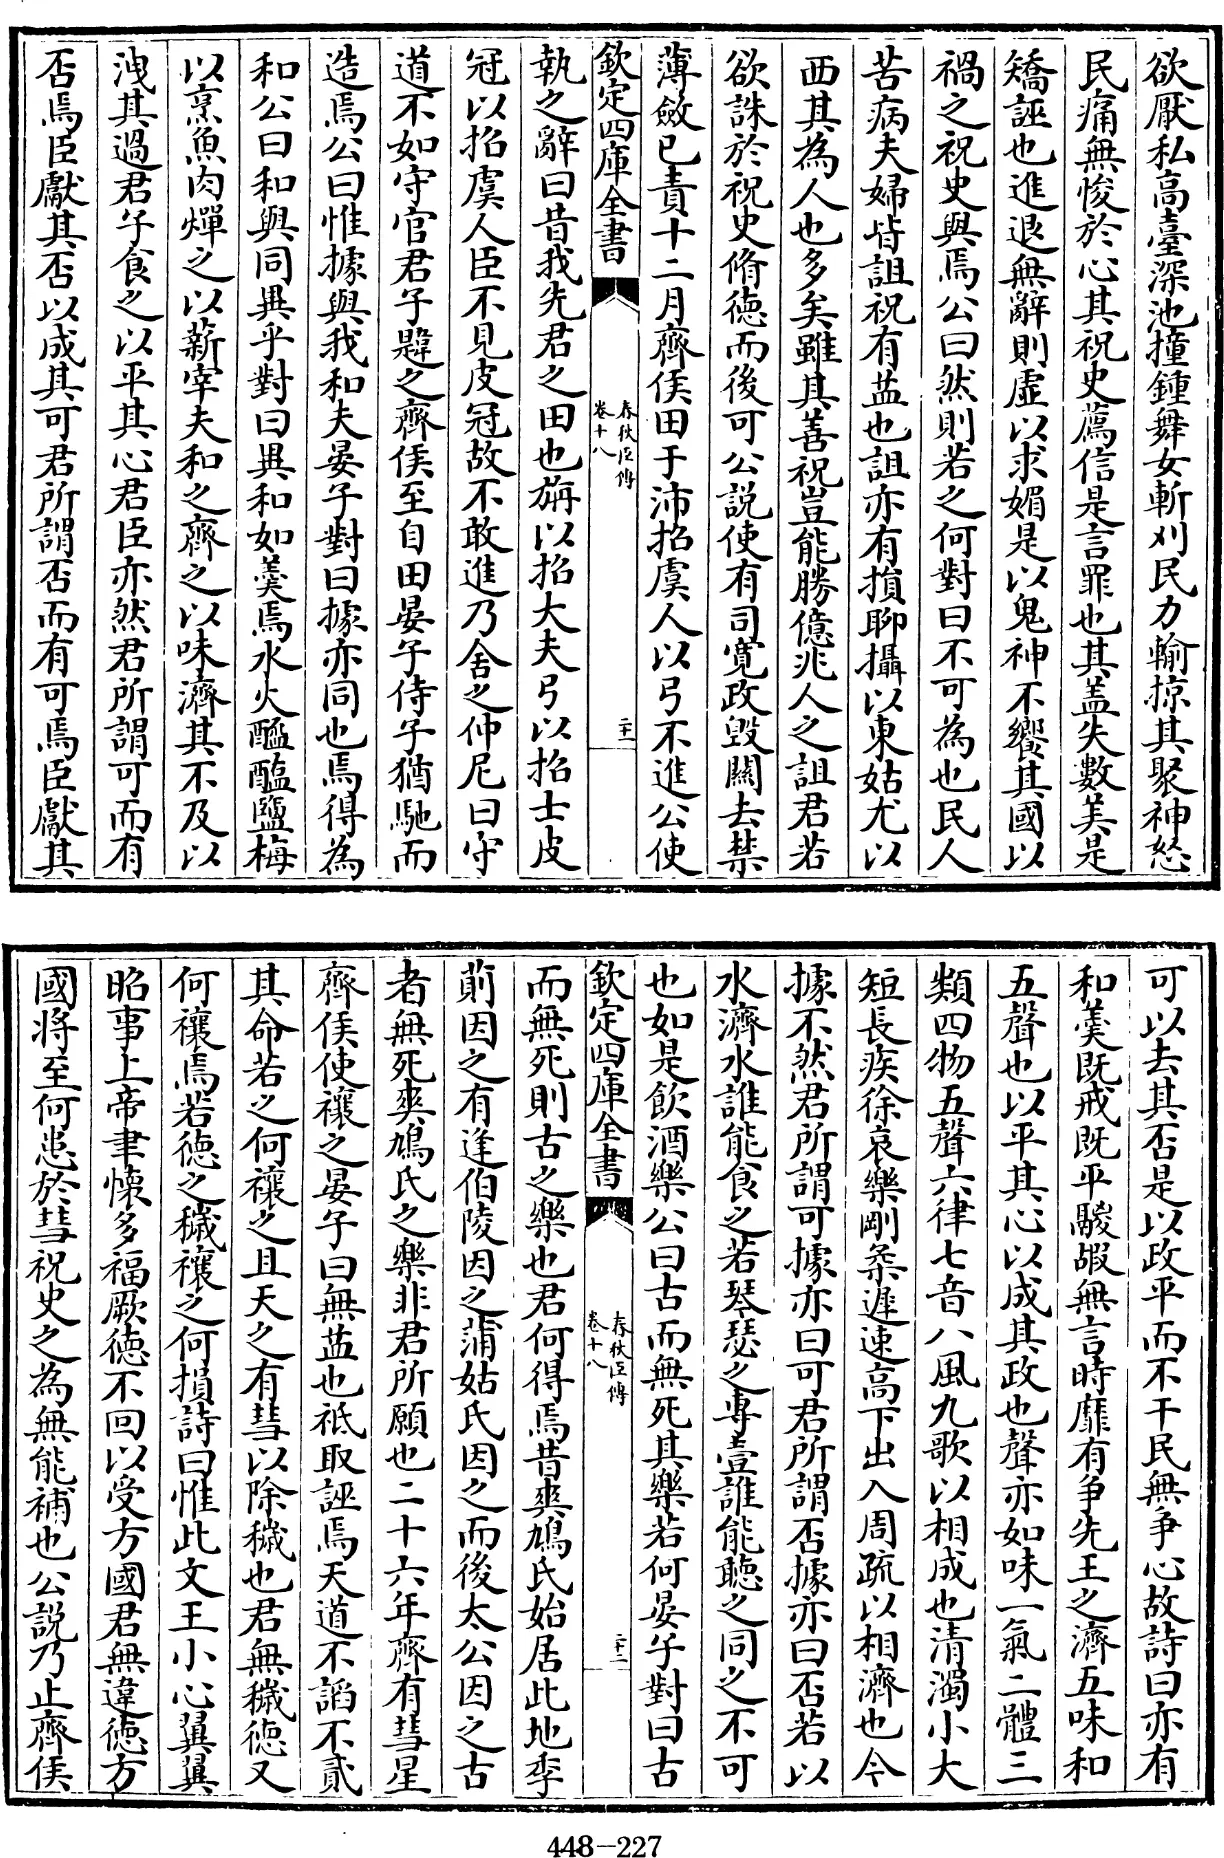 欲厭私高臺深池撞鍾舞女斬刈民力輸掠其聚神怒
民痛無悛於心其祝史薦信是言罪也其盖失數美是
矯誣也進退無辭則虛以求媚是以鬼神不饗其國以
禍之祝史與焉公曰然則若之何對曰不可為也民人
苦病夫婦皆詛祝有益也詛亦有損聊攝以東姑尤以
西其為人也多矣雖其善祝豈能勝億兆人之詛君若
欲誅於祝史脩德而後可公說使有司寛政毀關去禁
薄斂已責十二月齊侯田于沛招虞人以弓不進公使
欽定四庫全書
春秋臣傳
卷十八
二十一
執之辭曰昔我先君之田也旃以招大夫弓以招士皮
冠以招虞人臣不見皮冠故不敢進乃舍之仲尼曰守
道不如守官君子韙之齊侯至自田晏子侍子猶馳而
造焉公曰惟據與我和夫晏子對曰據亦同也焉得為
和公曰和與同異乎對曰異和如羮焉水火醯醢鹽梅
以烹魚肉燀之以薪宰夫和之齊之以味濟其不及以
洩其過君子食之以平其心君臣亦然君所謂可而有
否焉臣獻其否以成其可君所謂否而有可焉臣獻其
可以去其否是以政平而不干民無爭心故詩曰亦有
和羮既戒既平鬷嘏無言時靡有爭先王之濟五味和
五聲也以平其心以成其政也聲亦如味一氣二體三
類四物五聲六律七音八風九歌以相成也清濁小大
短長疾徐哀樂剛柔遲速高下出入周疏以相濟也今
據不然君所謂可據亦曰可君所謂否據亦曰否若以
水濟水誰能食之若琴瑟之專壹誰能聽之同之不可
也如是飲酒樂公曰古而無死其樂若何晏子對曰古
欽定四庫全書
春秋臣傳
卷十八
二十二
而無死則古之樂也君何得焉昔爽鳩氏始居此地季
萴因之有逢伯陵因之蒲姑氏因之而後太公因之古
者無死爽鳩氏之樂非君所願也二十六年齊有彗星
齊侯使禳之晏子曰無益也祗取誣焉天道不謟不貳
其命若之何禳之且天之有彗以除穢也君無穢德又
何禳焉若德之穢禳之何損詩曰惟此文王小心翼翼
昭事上帝聿懷多福厥德不回以受方國君無違德方
國將至何患於彗祝史之為無能補也公說乃止齊侯
448-227